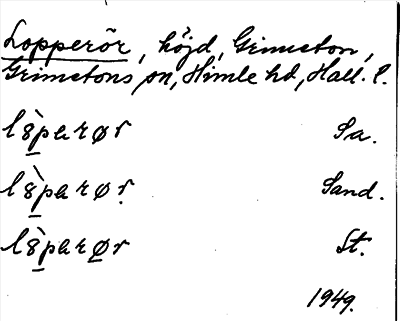 Lopperör, höjd, Grimeton,
Grimetons sn, Himle hd, Hall. l.
lò̱parør Sa.
lò̱parør Sand.
lò̱parø̱r St.
1949.